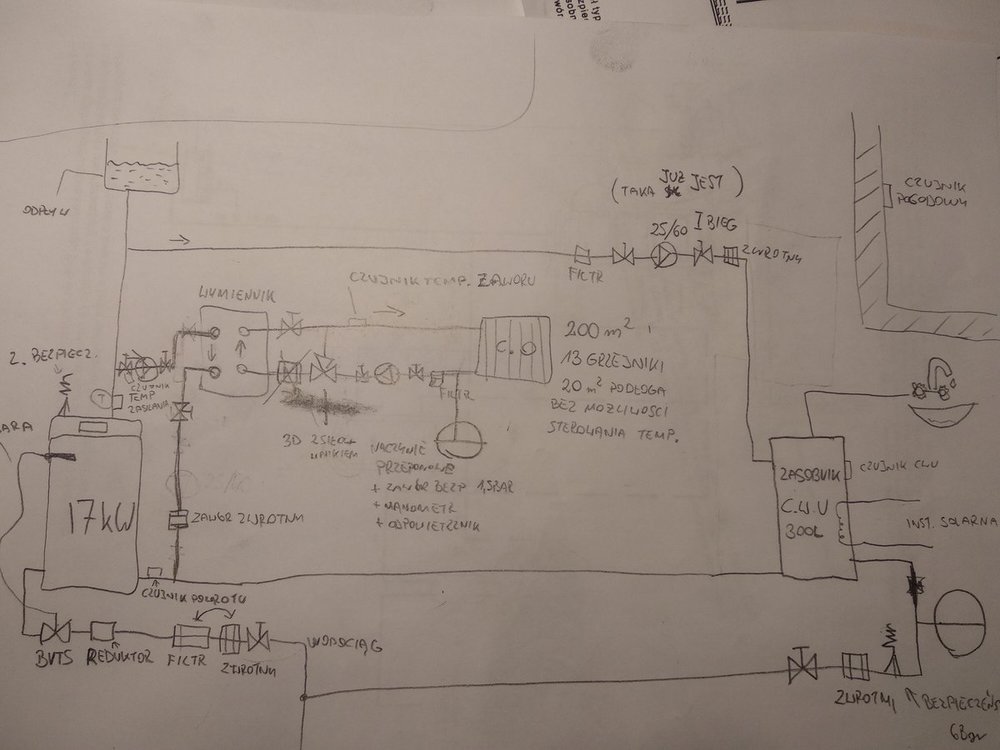 ODPŁYW
(TAKA JUŻ JEST)
25/60 I BIEG
FILTR
ZWROTNY
CZUJNIK
POGODOWY
CZUJNIK TEMP. ZAWORU
WYMIENNIK
Z. BEZPIECZ.
T
CZUJNIK
TEMP
ZASILANIA
C.O
200 m²
13 GRZEJNIKI
20 m² PODŁOGA
BEZ MOŻLIWOŚCI
STEROWANIA TEMP.
FILTR
3D Z SIŁOW
NIKIEM
NACZYNIE
PRZEPONOWE
+ ZAWÓR BEZP 1,5BAR
+ MANOMETR
+ ODPOWIETRZNIK
17kW
ZAWÓR ZWROTNY
CZUJNIK POWROTU
ZASOBNIK
C.W.U
300L
CZUJNIK CWU
INST. SOLARNA
BVTS
REDUKTOR
FILTR
ZWROTNY
WODOCIĄG
ZWROTNY
BEZPIECZEŃS
6Bar